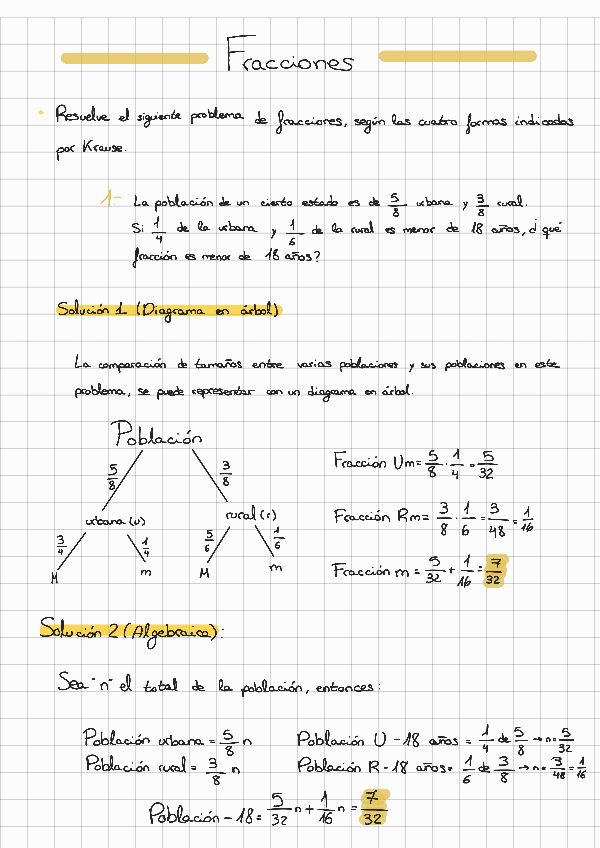 Fracciones
Resuelve el siguiente problema de fracciones, según las cuatro formas indicadas
por Krause.
1.- La población de un cierto estado es de 5/8 urbana y 3/8 rural.
Si 1/4 de la urbana y 1/6 de la rural es menor de 18 años, ¿qué
fracción es menor de 18 años?
Solución 1 (Diagrama en árbol)
La comparación de tamaños entre varias poblaciones y sus poblaciones en este
problema, se puede representar con un diagrama en árbol.
Población
5/8 3/8
urbana (u) rural (r)
3/4 1/4 5/6 1/6
M m M m
Fracción Um = 5/8 · 1/4 = 5/32
Fracción Rm = 3/8 · 1/6 = 3/48 = 1/16
Fracción m = 5/32 + 1/16 = 7/32
Solución 2 (Algebraica):
Sea "n" el total de la población, entonces:
Población urbana = 5/8 n Población U - 18 años = 1/4 de 5/8 → n = 5/32
Población rural = 3/8 n Población R - 18 años = 1/6 de 3/8 → n = 3/48 = 1/16
Población - 18 = 5/32 n + 1/16 n = 7/32